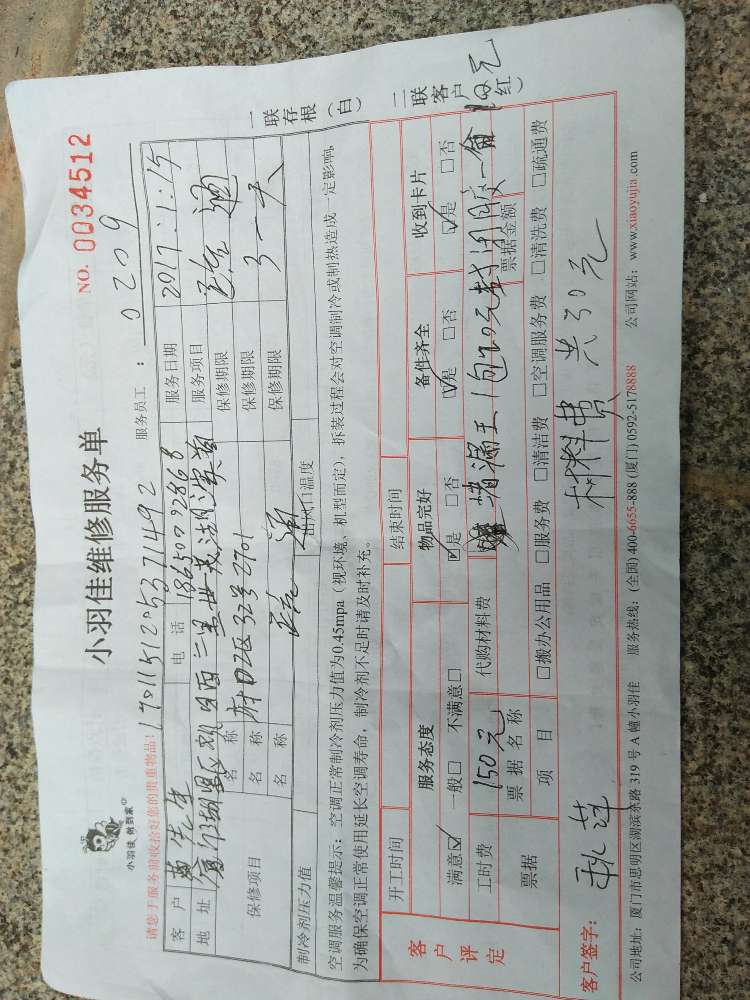 小羽佳 帮到家
小羽佳维修服务单
NO. 0034512
请您于服务前收拾好您的贵重物品!
1701151205371492
服务员工 : 0209
客户
先生
电话
18650022868
服务日期
2017.1.15
地址
服务项目
府D区32号2701
保修项目
名称
保修期限
名称
保修期限
名称
保修期限
制冷剂压力值
出风口温度
空调服务温馨提示:空调正常制冷剂压力值为0.45mpa(视环境、机型而定),拆装过程会对空调制冷或制热造成一定影响,
为确保空调正常使用延长空调寿命,制冷剂不足时请及时补充。
一联存根(白)
二联客户(红)
客户评定
开工时间
结束时间
服务态度
物品完好
备件齐全
收到卡片
满意☑ 一般□ 不满意□
☑是 □否
☑是 □否
☑是 □否
工时费
150元
代购材料费
堵漏王1包20元
10元
票据
票据名称
票据金额
项目
□搬办公用品 □服务费 □清洁费 □空调服务费 □清洗费 □疏通费
客户签字:
材料费 共30元
公司地址:厦门市思明区湖滨东路 319 号 A 幢小羽佳 服务热线:(全国) 400-6655-888 (厦门) 0592-5178888 公司网站:www.xiaoyujia.com